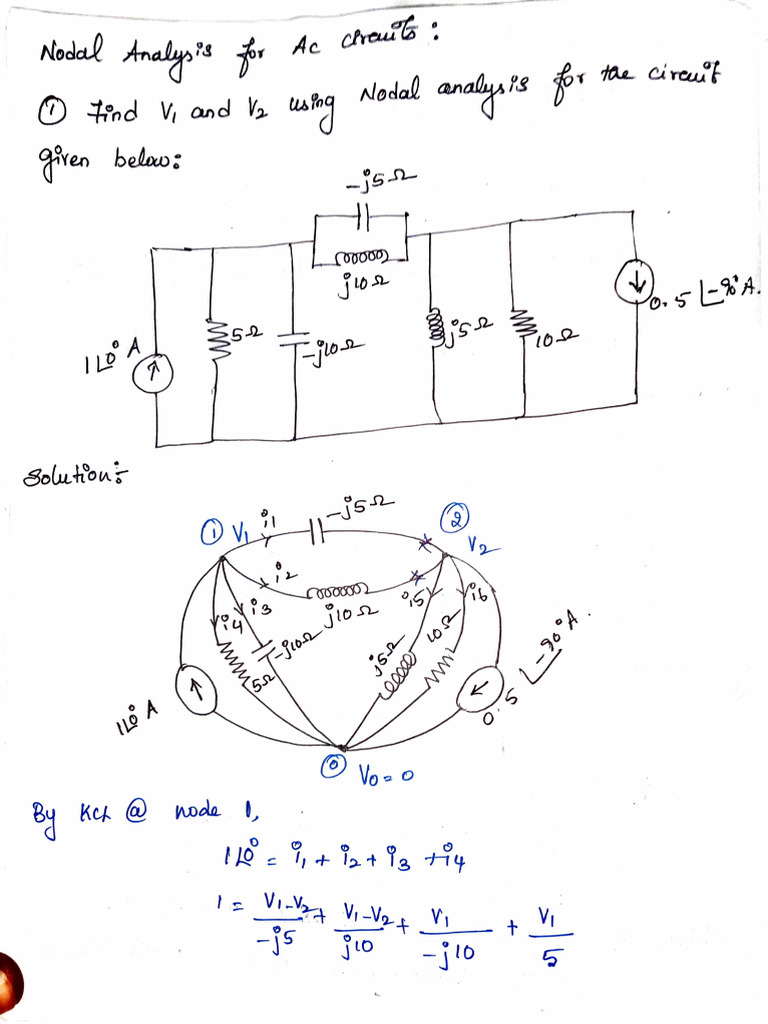 Nodal Analysis for Ac circuits:
① Find V₁ and V₂ using Nodal analysis for the circuit
given below:
-j5Ω
j10Ω
1∠0° A
5Ω
-j10Ω
j5Ω
10Ω
0.5∠-90° A.
Solution:-
① V₁
i1
-j5Ω
② V₂
i2
j10Ω
i3
i4
-j10Ω
5Ω
i5
i6
j5Ω
10Ω
1∠0° A
0.5∠-90° A.
⓪ V₀=0
By KCL @ node 1,
1∠0° = i₁ + i₂ + i₃ + i₄
1 = V₁-V₂/-j5 + V₁-V₂/j10 + V₁/-j10 + V₁/5